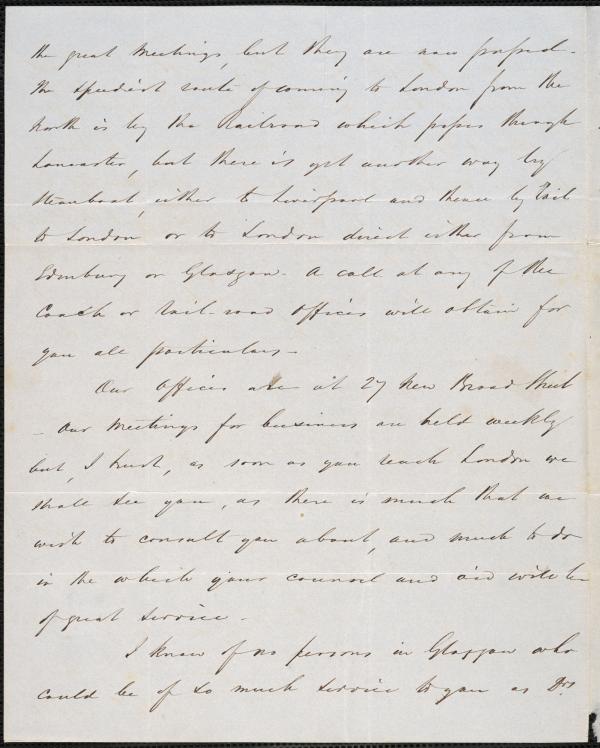 the great Meetings, but they are now passed.
The speediest route of coming to London from the
North is by the Railroad which passes through
Lancaster, but there is yet another way by
steamboat, either to Liverpool and thence by Rail
to London or to London direct either from
Edinburg or Glasgow. A call at any of the
Coach or rail-road offices will obtain for
you all particulars —
Our Offices are at 27 New Broad Street
— Our Meetings for business are held weekly
but, I trust, as soon as you reach London we
shall see you, as there is much that we
wish to consult you about, and much to do
in the which your council and aid will be
of great service —
I know of no persons in Glasgow who
could be of so much service to you as Drs